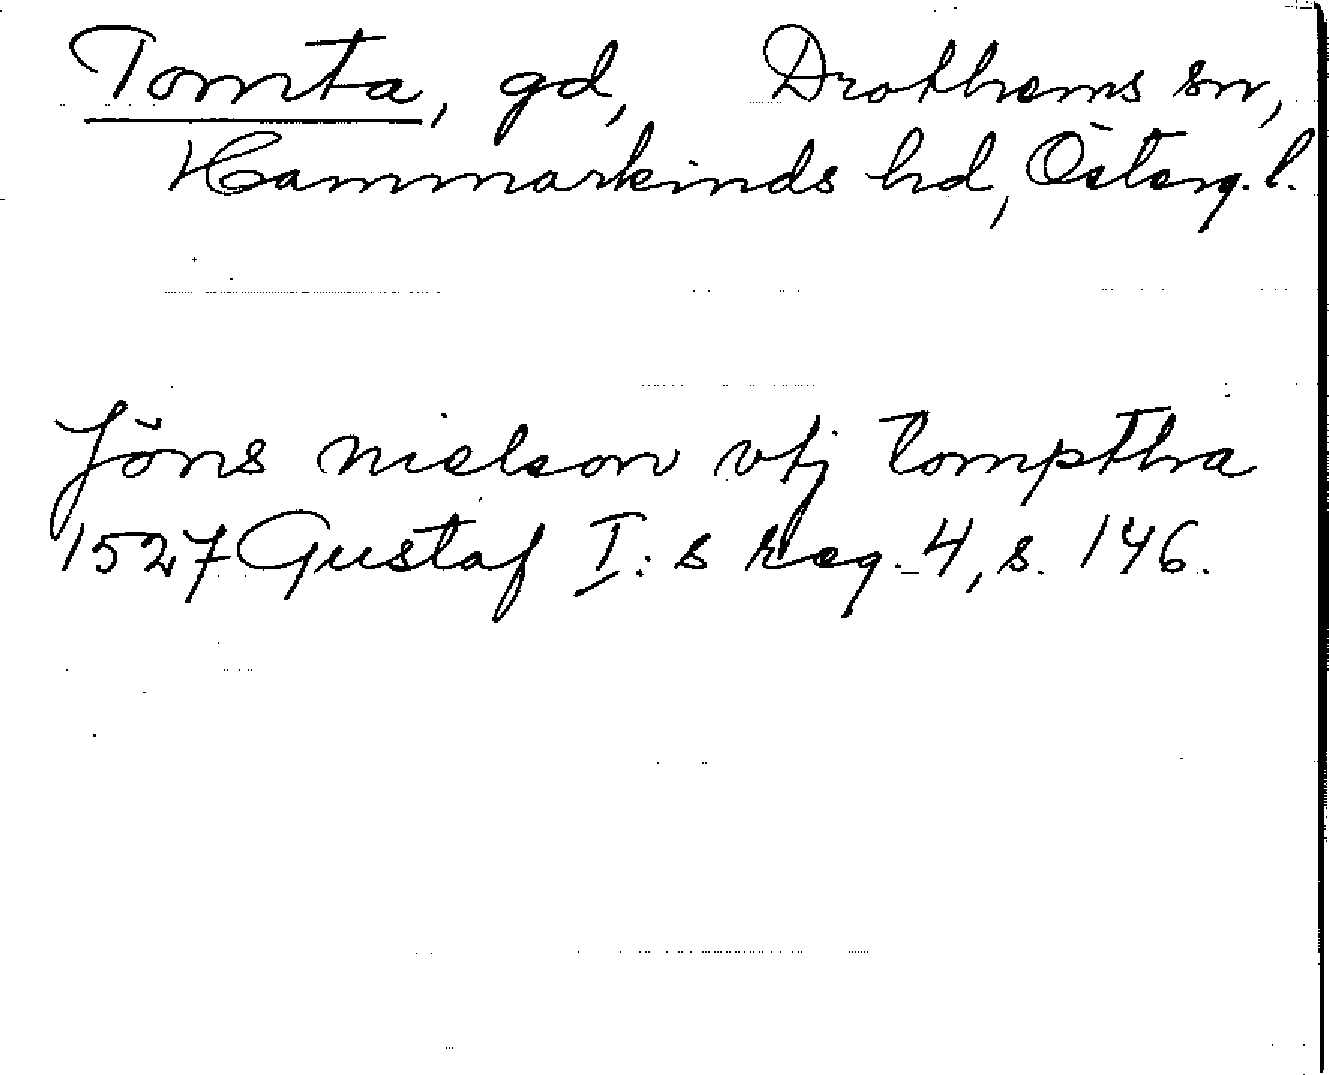 Tomta, gd, Drothems sn,
Hammarkinds hd, Österg. l.
Jöns nielson vtj tomptha
1527 Gustaf I:s reg. 4, s. 146.